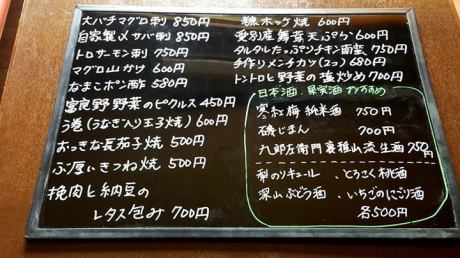 大バチマグロ刺 850円
自家製〆サバ刺 850円
トロサーモン刺 750円
マグロ山かけ 600円
なまこポン酢 680円
富良野野菜のピクルス 450円
う巻(うなぎ入り玉子焼) 600円
おっきな長茄子焼 500円
ぶ厚いきつね焼 500円
挽肉と納豆の
レタス包み 700円
縞ホッケ焼 600円
愛別産舞茸天ぷら 600円
タルタルたっぷりチキン南蛮 750円
手作りメンチカツ(2コ) 680円
トントロと野菜の塩炒め 700円
日本酒、果実酒おすすめ
寒紅梅 純米酒 750円
磯じまん 700円
九郎左衛門 裏雅山流 生酒 750円
梨のリキュール、とろこく桃酒
深山ぶどう酒、いちごのにごり酒
各500円